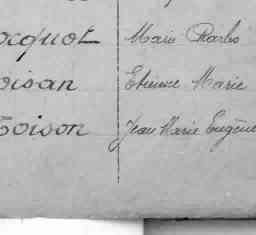 ocquot Marie Charles
oisan Etienne Marie
Toison Jean Marie Eugène